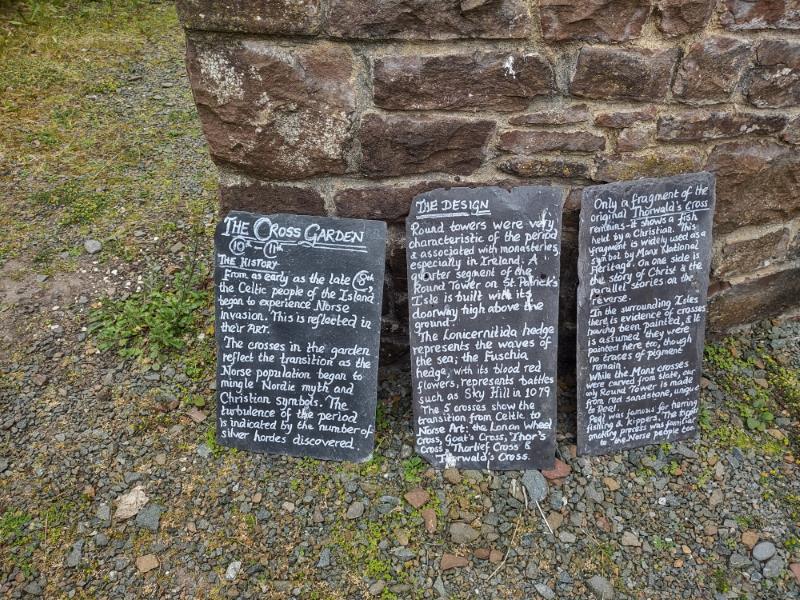 THE CROSS GARDEN
10th - 11th
THE HISTORY
From as early as the late 8th,
the Celtic people of the Island
began to experience Norse
invasion. This is reflected in
their ART.
The crosses in the garden
reflect the transition as the
Norse population began to
mingle Nordic myth and
Christian symbols. The
turbulence of the period
is indicated by the number of
silver hordes discovered
THE DESIGN
Round towers were very
characteristic of the period
& associated with monasteries,
especially in Ireland. A
quarter segment of the
Round Tower on St. Patrick's
Isle is built with its
doorway high above the
ground.
The Lonicernitida hedge
represents the waves of
the sea; the Fuschia
hedge, with its blood red
flowers, represents battles
such as Sky Hill in 1079
The 5 crosses show the
transition from Celtic to
Norse Art: the Lonan Wheel
Cross, Goat's Cross, Thor's
Cross, Thorlief Cross &
Thorwald's Cross.
Only a fragment of the
original Thorwald's Cross
remains - it shows a fish
held by a Christian. This
fragment is widely used as a
symbol by Manx National
Heritage. On one side is
the story of Christ & the
parallel stories on the
reverse.
In the surrounding Isles
there is evidence of crosses
having been painted, & it
is assumed they were
painted here too, though
no traces of pigment
remain.
While the Manx crosses
were carved from slate, our
only Round Tower is made
from red sandstone, unique
to Peel.
Peel was famous for herring
fishing & kippers. The
smoking process was familiar
to the Norse people too.